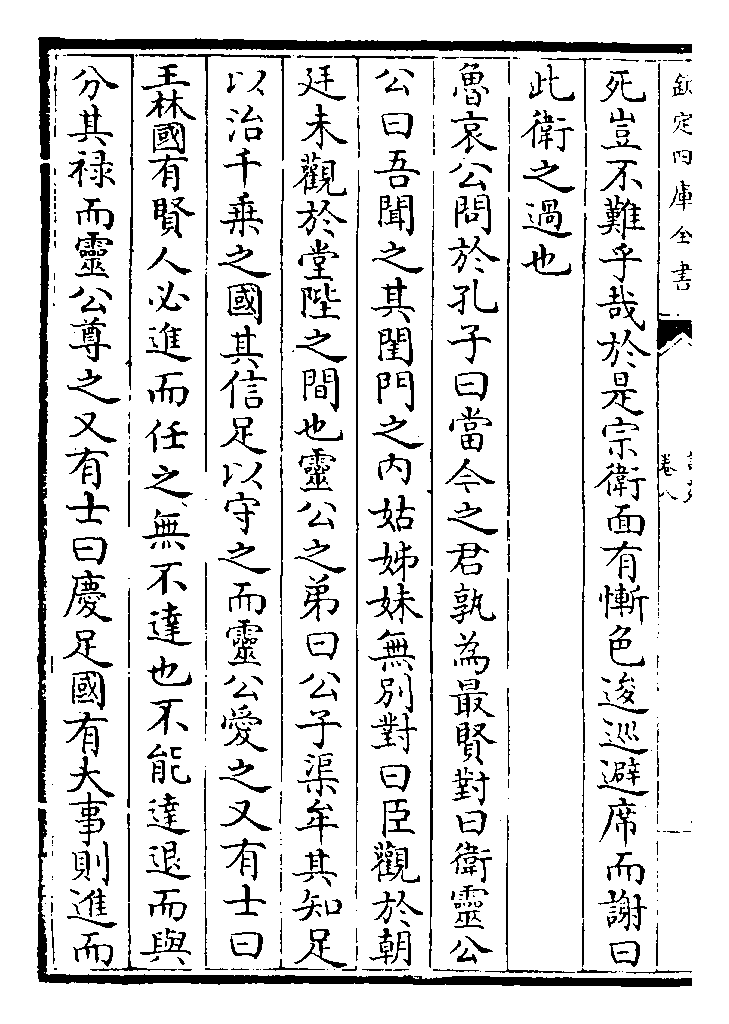 欽定四庫全書
卷八
死豈不難乎哉於是宗衛面有慚色逡巡避席而謝曰
此衛之過也
魯哀公問於孔子曰當今之君孰為最賢對曰衛靈公
公曰吾聞之其閨門之内姑姊妹無別對曰臣觀於朝
廷未觀於堂陛之間也靈公之弟曰公子渠牟其知足
以治千乗之國其信足以守之而靈公愛之又有士曰
王林國有賢人必進而任之無不達也不能達退而與
分其禄而靈公尊之又有士曰慶足國有大事則進而